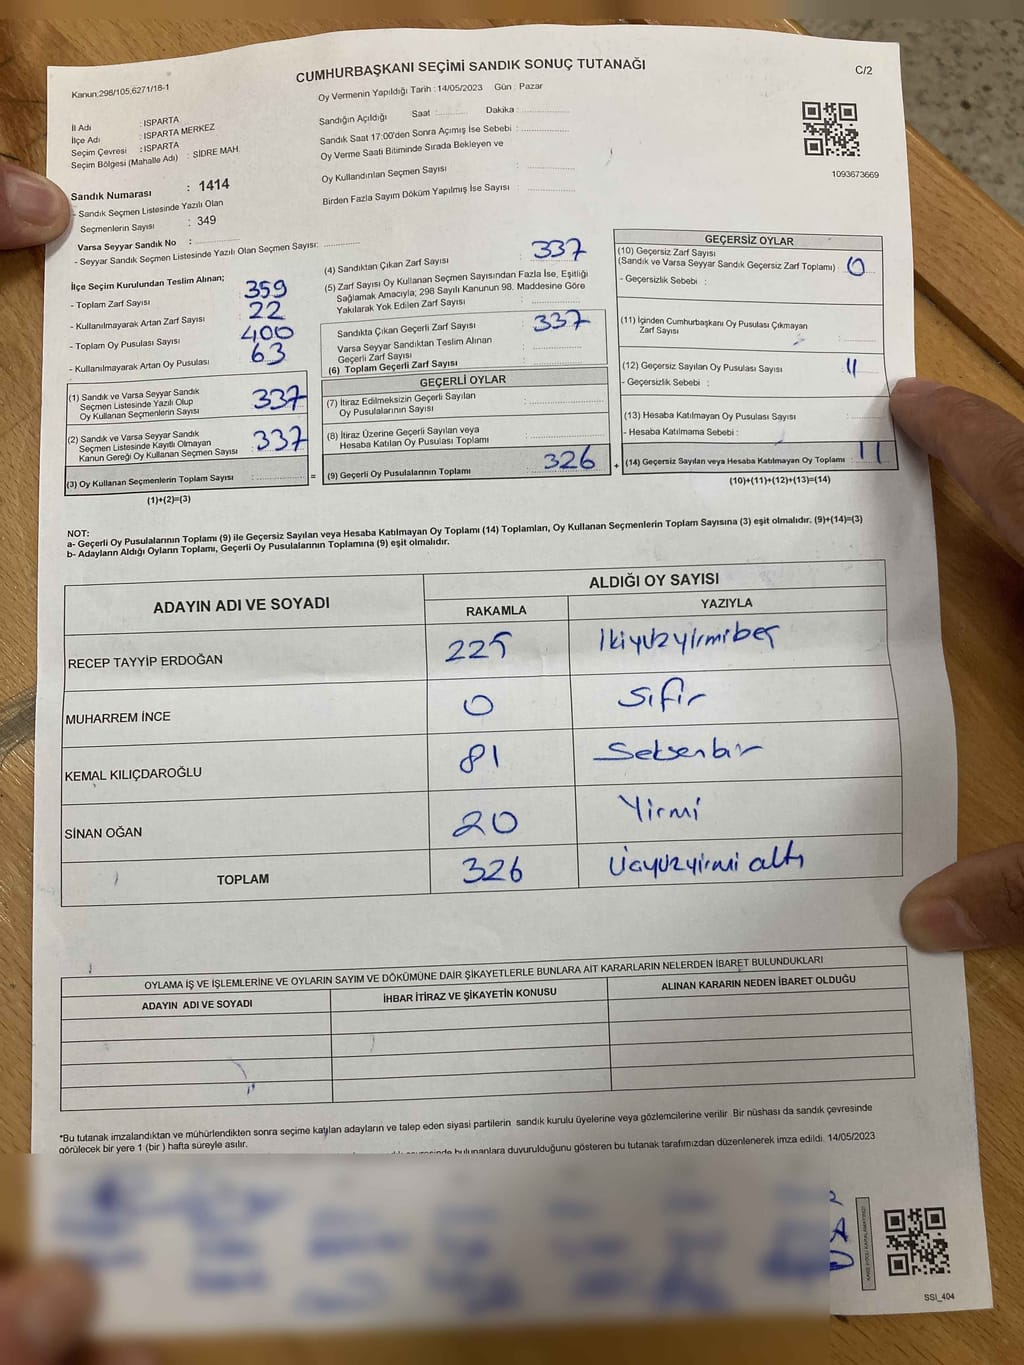 CUMHURBAŞKANI SEÇİMİ SANDIK SONUÇ TUTANAĞI
C/2
Kanun:298/105,6271/18-1
Oy Vermenin Yapıldığı Tarih : 14/05/2023 Gün : Pazar
Sandığın Açıldığı Saat : Dakika :
Sandık Saat 17:00'den Sonra Açımış İse Sebebi :
Oy Verme Saati Bitiminde Sırada Bekleyen ve
Oy Kullandırılan Seçmen Sayısı :
Birden Fazla Sayım Döküm Yapılmış İse Sayısı :
İl Adı : ISPARTA
İlçe Adı : ISPARTA MERKEZ
Seçim Çevresi : ISPARTA
Seçim Bölgesi (Mahalle Adı) : SİDRE MAH.
1093673669
Sandık Numarası : 1414
- Sandık Seçmen Listesinde Yazılı Olan
Seçmenlerin Sayısı : 349
Varsa Seyyar Sandık No :
- Seyyar Sandık Seçmen Listesinde Yazılı Olan Seçmen Sayısı:
İlçe Seçim Kurulundan Teslim Alınan;
- Toplam Zarf Sayısı 359
- Kullanılmayarak Artan Zarf Sayısı 22
- Toplam Oy Pusulası Sayısı 400
- Kullanılmayarak Artan Oy Pusulası 63
(1) Sandık ve Varsa Seyyar Sandık
Seçmen Listesinde Yazılı Olup
Oy Kullanan Seçmenlerin Sayısı 337
(2) Sandık ve Varsa Seyyar Sandık
Seçmen Listesinde Kayıtlı Olmayan
Kanun Gereği Oy Kullanan Seçmen Sayısı 337
(3) Oy Kullanan Seçmenlerin Toplam Sayısı :
(1)+(2)=(3)
=
(4) Sandıktan Çıkan Zarf Sayısı : 337
(5) Zarf Sayısı Oy Kullanan Seçmen Sayısından Fazla İse, Eşitliği
Sağlamak Amacıyla; 298 Sayılı Kanunun 98. Maddesine Göre
Yakılarak Yok Edilen Zarf Sayısı :
Sandıkta Çıkan Geçerli Zarf Sayısı : 337
Varsa Seyyar Sandıktan Teslim Alınan
Geçerli Zarf Sayısı :
(6) Toplam Geçerli Zarf Sayısı :
GEÇERLİ OYLAR
(7) İtiraz Edilmeksizin Geçerli Sayılan
Oy Pusulalarının Sayısı :
(8) İtiraz Üzerine Geçerli Sayılan veya
Hesaba Katılan Oy Pusulası Toplamı :
(9) Geçerli Oy Pusulalarının Toplamı : 326
+
GEÇERSİZ OYLAR
(10) Geçersiz Zarf Sayısı
(Sandık ve Varsa Seyyar Sandık Geçersiz Zarf Toplamı) : 0
- Geçersizlik Sebebi :
(11) İçinden Cumhurbaşkanı Oy Pusulası Çıkmayan
Zarf Sayısı :
(12) Geçersiz Sayılan Oy Pusulası Sayısı : 11
- Geçersizlik Sebebi :
(13) Hesaba Katılmayan Oy Pusulası Sayısı :
- Hesaba Katılmama Sebebi :
(14) Geçersiz Sayılan veya Hesaba Katılmayan Oy Toplamı : 11
(10)+(11)+(12)+(13)=(14)
NOT:
a- Geçerli Oy Pusulalarının Toplamı (9) ile Geçersiz Sayılan veya Hesaba Katılmayan Oy Toplamı (14) Toplamları, Oy Kullanan Seçmenlerin Toplam Sayısına (3) eşit olmalıdır. (9)+(14)=(3)
b- Adayların Aldığı Oyların Toplamı, Geçerli Oy Pusulalarının Toplamına (9) eşit olmalıdır.
ADAYIN ADI VE SOYADI ALDIĞI OY SAYISI
RAKAMLA YAZIYLA
RECEP TAYYİP ERDOĞAN 225 İkiyüzyirmibeş
MUHARREM İNCE 0 Sıfır
KEMAL KILIÇDAROĞLU 81 Seksenbir
SİNAN OĞAN 20 Yirmi
TOPLAM 326 Üçyüzyirmi altı
OYLAMA İŞ VE İŞLEMLERİNE VE OYLARIN SAYIM VE DÖKÜMÜNE DAİR ŞİKAYETLERLE BUNLARA AİT KARARLARIN NELERDEN İBARET BULUNDUKLARI
ADAYIN ADI VE SOYADI İHBAR İTİRAZ VE ŞİKAYETİN KONUSU ALINAN KARARIN NEDEN İBARET OLDUĞU
*Bu tutanak imzalandıktan ve mühürlendikten sonra seçime katılan adayların ve talep eden siyasi partilerin sandık kurulu üyelerine veya gözlemcilerine verilir. Bir nüshası da sandık çevresinde
görülecek bir yere 1 (bir ) hafta süreyle asılır.
bulunanlara duyurulduğunu gösteren bu tutanak tarafımızdan düzenlenerek imza edildi. 14/05/2023
SSI_404